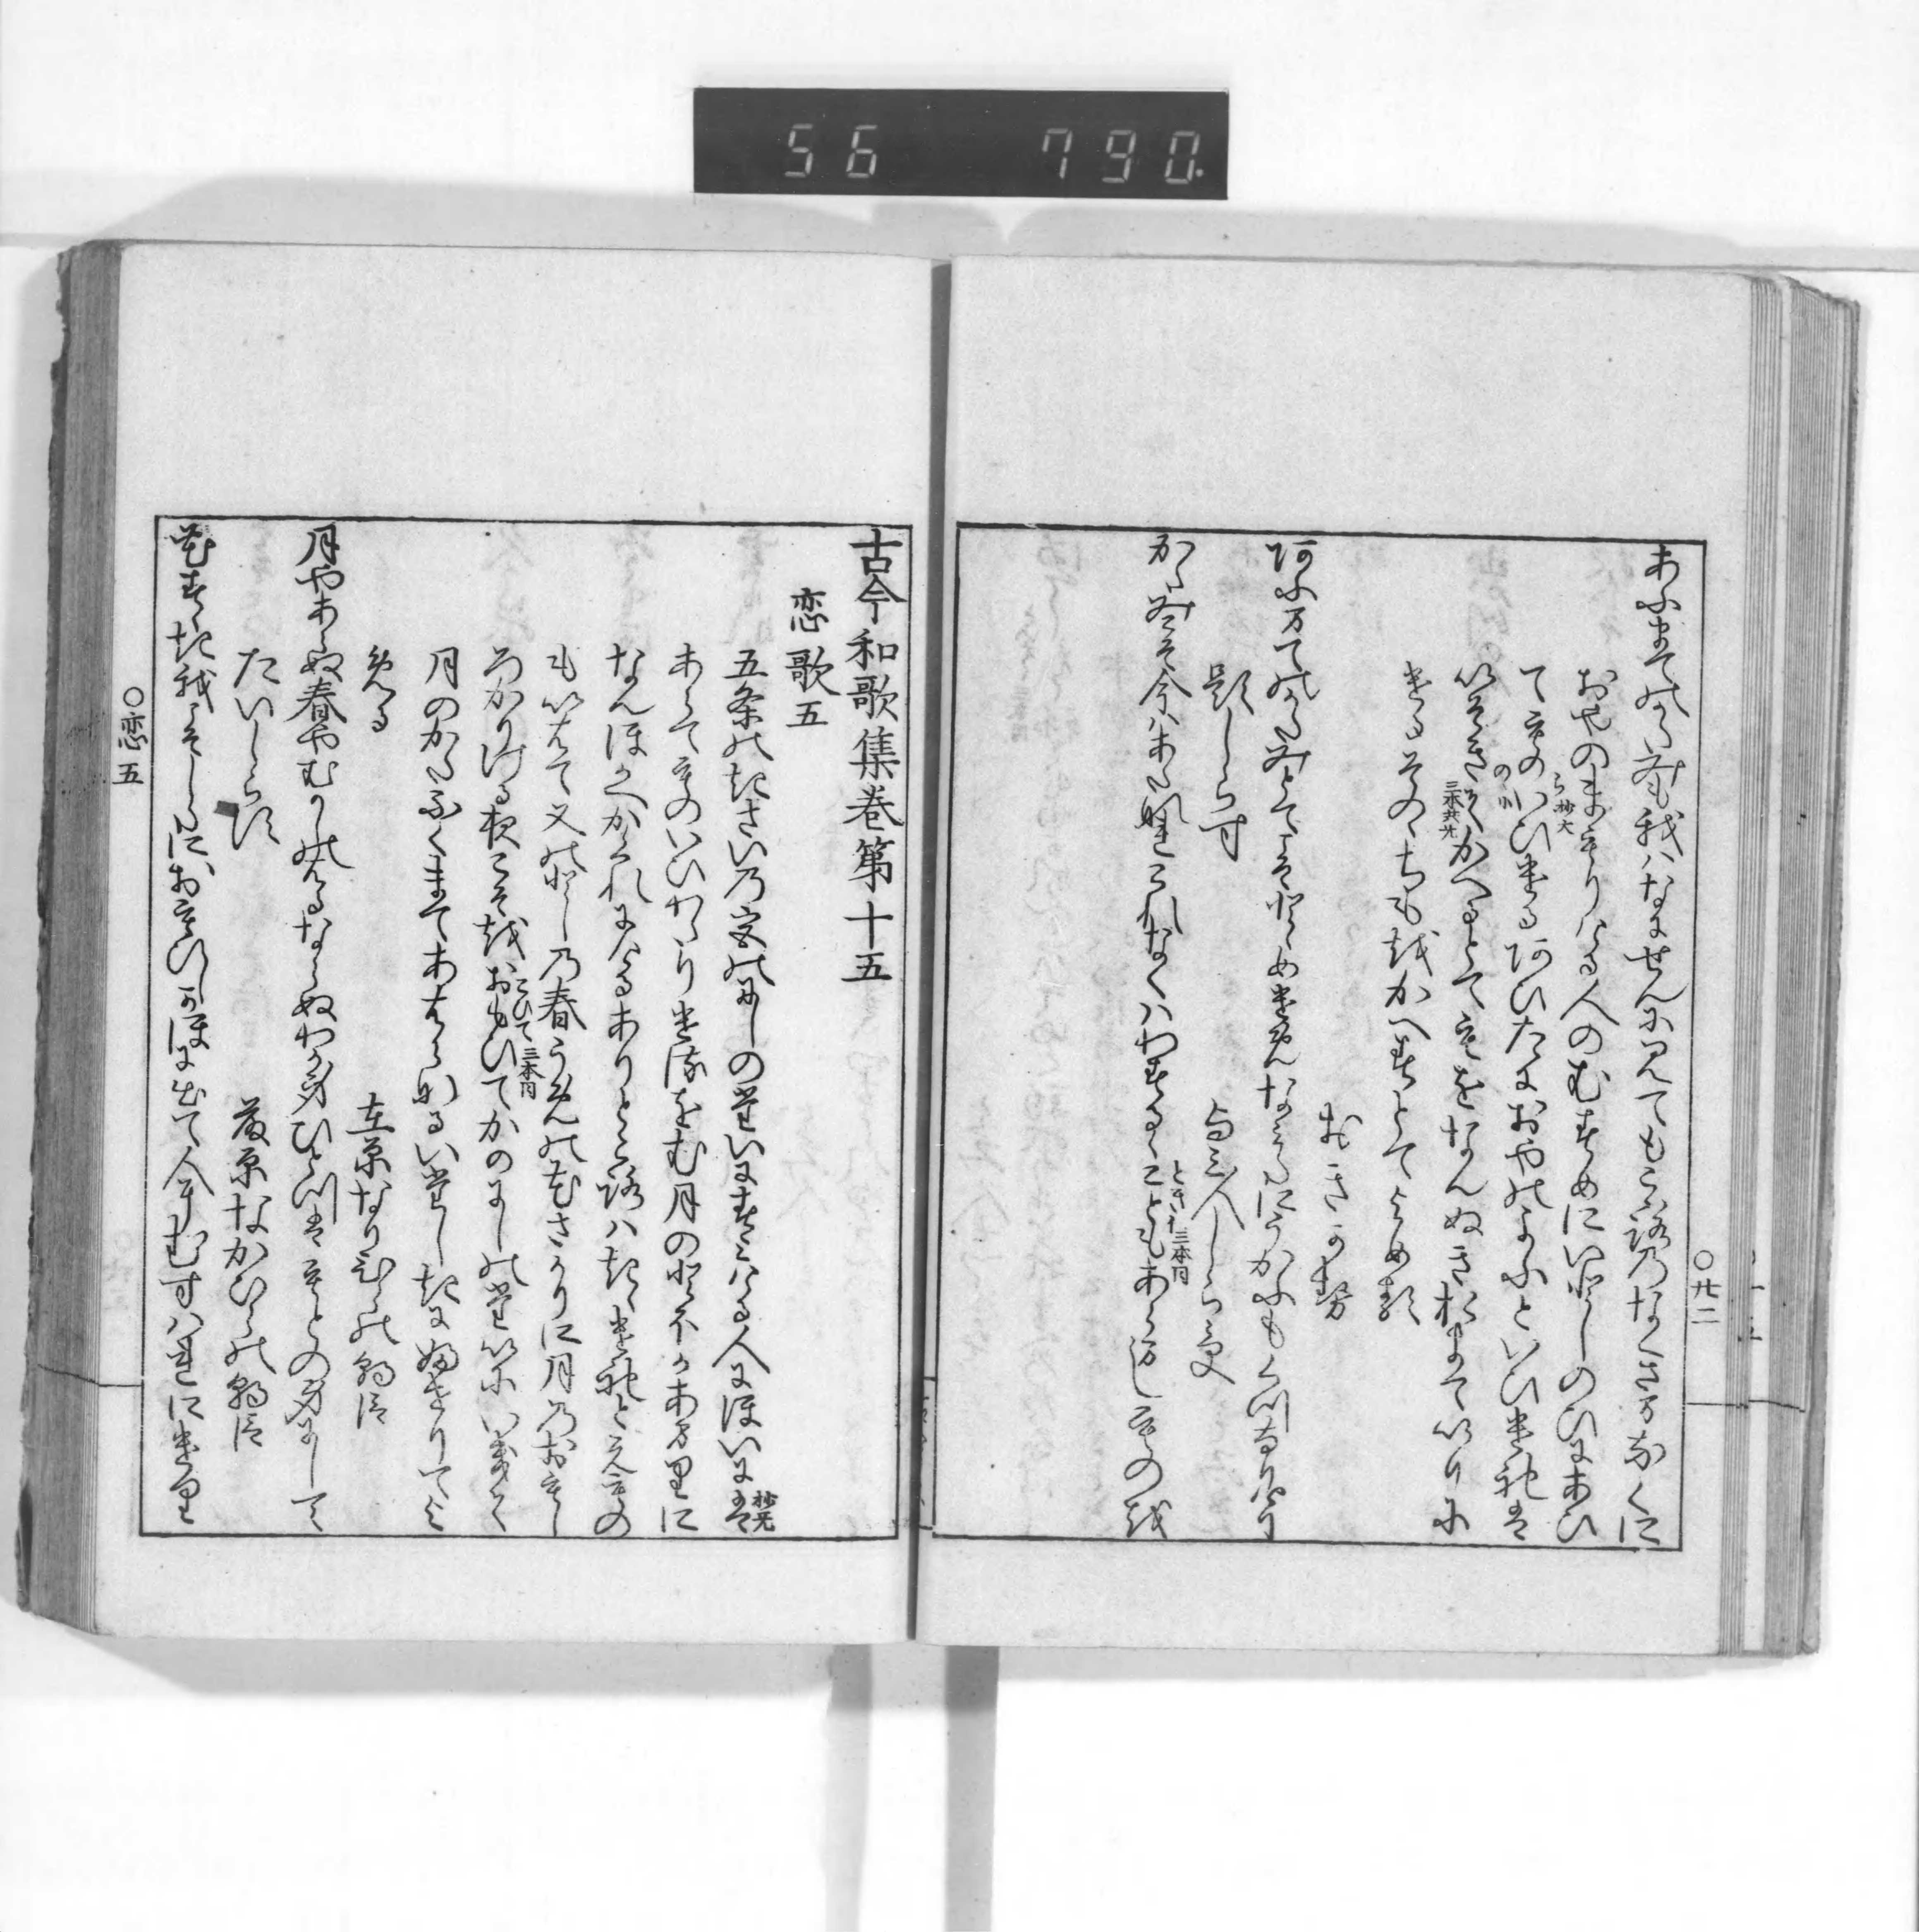 ○廿二
あふまてのかたみも我ハなにせんに見てもこゝろのなくさまなくに
おやのまもりける人のむすめにいとしのひにあひ
てものいひける阿ひたにおやのよふといひけれは
ら抄大
の小
いそきてかへるとてもをなんぬきおきていりに
三本共无
けるそのゝちもをかへすとてよめる
おきかせ
阿ふまてのかたみとてこそとゝめけめなみたにうかふもくつなりけり
題しらす
よみ人しらす
かたみこそ今ハあたなれこれなくハわするゝこともあらましものを
ときも三本同
古今和歌集巻第十五
恋歌五
五条のきさいの宮のにしのたいにすみける人にほいには
抄无
あらてものいひわたりけるをむ月のとをかあまりに
なんほかへかくれにけるありところハきゝけれとえもの
もいはて又のとしの春うめの花さかりに月のおもし
ろかりける夜こそをおもひてかのにしのたいにいきて
こひて三本同
月のかたふくまてあはらなるいたしきにふせりてよ
める
在原なりひらの朝臣
月やあらぬ春やむかしのはるならぬわか身ひとつはもとの身にして
たいしらす
藤原なかひらの朝臣
花すゝき我こそしたにおもひしかほに出て人にむすハれにけり
○恋五
56 790